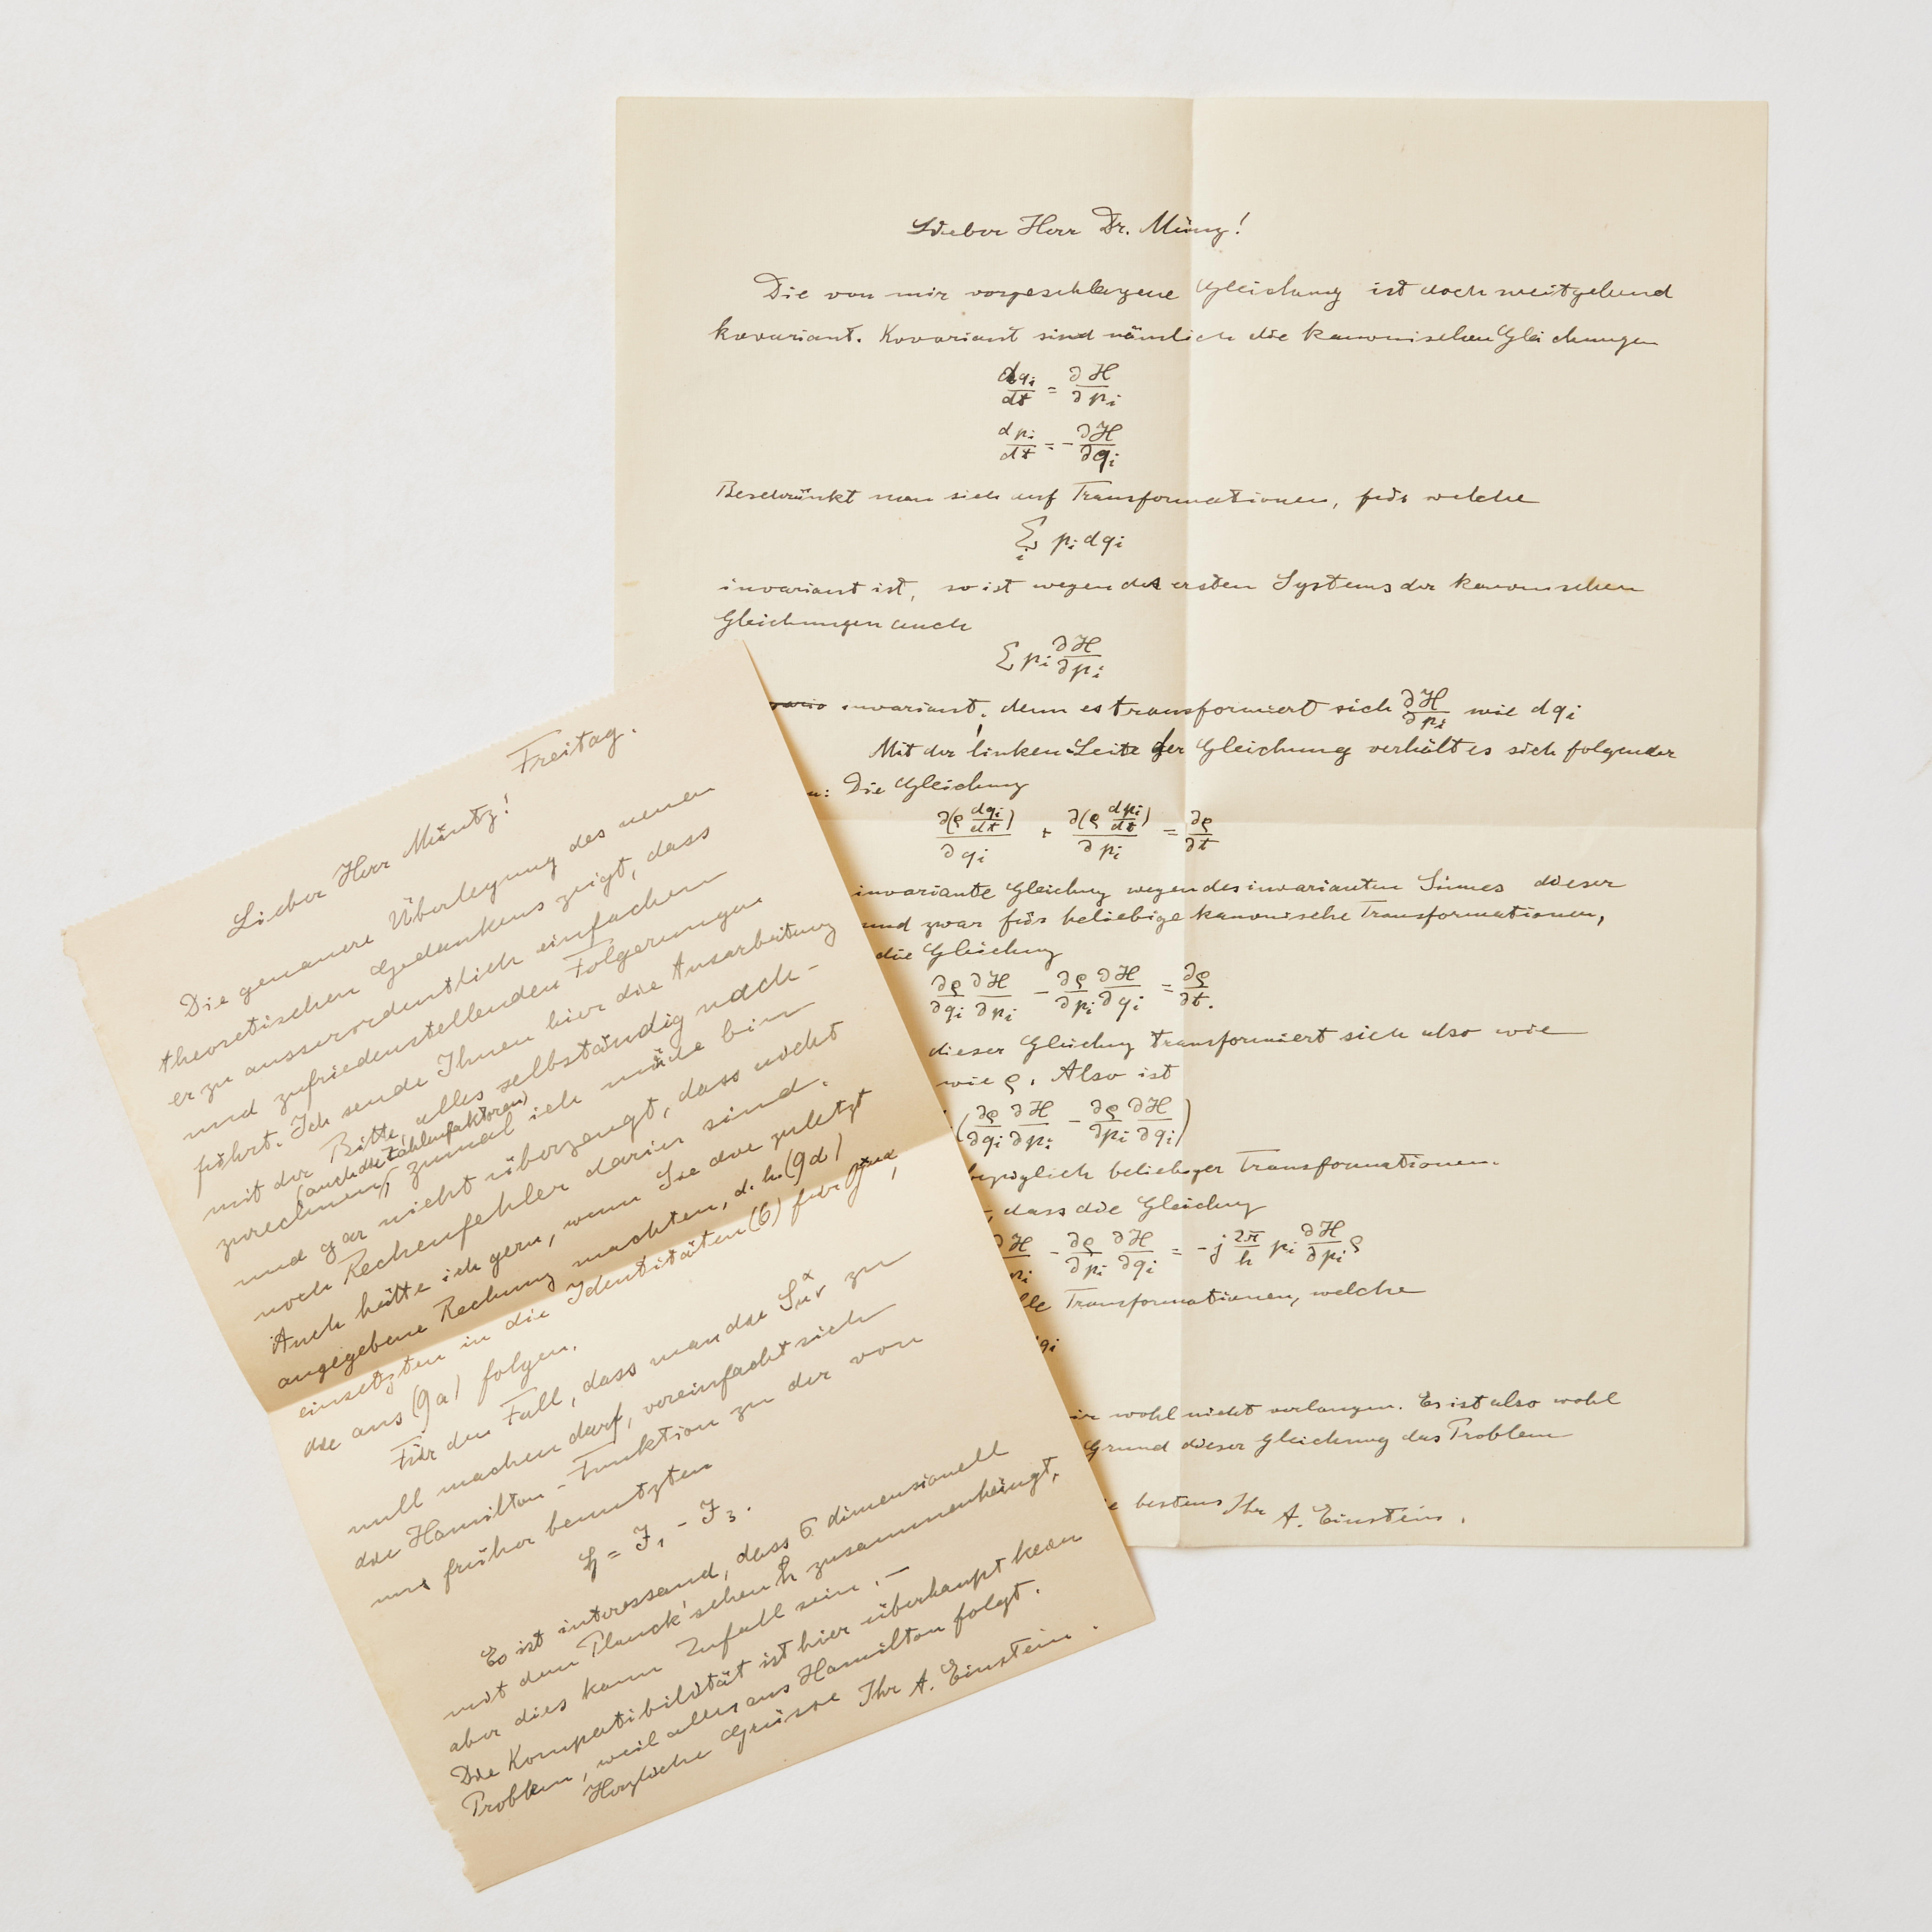 Lieber Herr Dr. Münz!
Die von mir vorgeschlagene Gleichung ist doch weitgehend
kovariant. Kovariant sind nämlich die kanonischen Gleichungen
dqi/dt = ∂H/∂pi
dpi/dt = -∂H/∂qi
Beschränkt man sich auf Transformationen, für welche
∑i pi dqi
invariant ist, so ist wegen des ersten Systems der kanonischen
Gleichungen auch
∑ pi ∂H/∂pi
invariant, denn es transformiert sich ∂H/∂pi wie dqi
Mit der linken Seite der Gleichung verhält es sich folgender
n: Die Gleichung
∂(ϱ dqi/dt)/∂qi + ∂(ϱ dpi/dt)/∂pi = ∂ϱ/∂t
invariante Gleichung wegen des invarianten Sinnes dieser
und zwar für beliebige kanonische Transformationen,
die Gleichung
∂ϱ/∂qi ∂H/∂pi - ∂ϱ/∂pi ∂H/∂qi = ∂ϱ/∂t.
dieser Gleichung transformiert sich also wie
wie ϱ. Also ist
(∂ϱ/∂qi ∂H/∂pi - ∂ϱ/∂pi ∂H/∂qi)
bezüglich beliebiger Transformationen.
, dass die Gleichung
∂H/∂pi - ∂ϱ/∂pi ∂H/∂qi = -j 2π/h pi ∂H/∂pi ϱ
lle Transformationen, welche
qi
ir wohl nicht verlangen. Es ist also wohl
Grund dieser Gleichung das Problem
e bestens Ihr A. Einstein.
Freitag.
Lieber Herr Müntz!
Die genauere Überlegung des neuen
theoretischen Gedankens zeigt, dass
er zu ausserordentlich einfachen
und zufriedenstellenden Folgerungen
führt. Ich sende Ihnen hier die Ausarbeitung
mit der Bitte, alles selbständig nach-
(auch die Zahlenfaktoren)
zurechnen, zumal ich müde bin
und gar nicht überzeugt, dass nicht
noch Rechenfehler darin sind.
Auch hätte ich gern, wenn Sie die zuletzt
angegebene Rechnung machten, d.h. (9d)
einsetzten in die Identitäten (6) für
die aus (9a) folgen.
Für den Fall, dass man die Sμν^α zu
null machen darf, vereinfacht sich
die Hamilton-Funktion zu der von
uns früher benutzten
H = J1 - J3.
Es ist interessand, dass 6 dimensionell
mit dem Planck'schen h zusammenhängt,
aber dies kann Zufall sein. —
Die Kompatibilität ist hier überhaupt kein
Problem, weil alles aus Hamilton folgt.
Herzliche Grüsse Ihr A. Einstein.